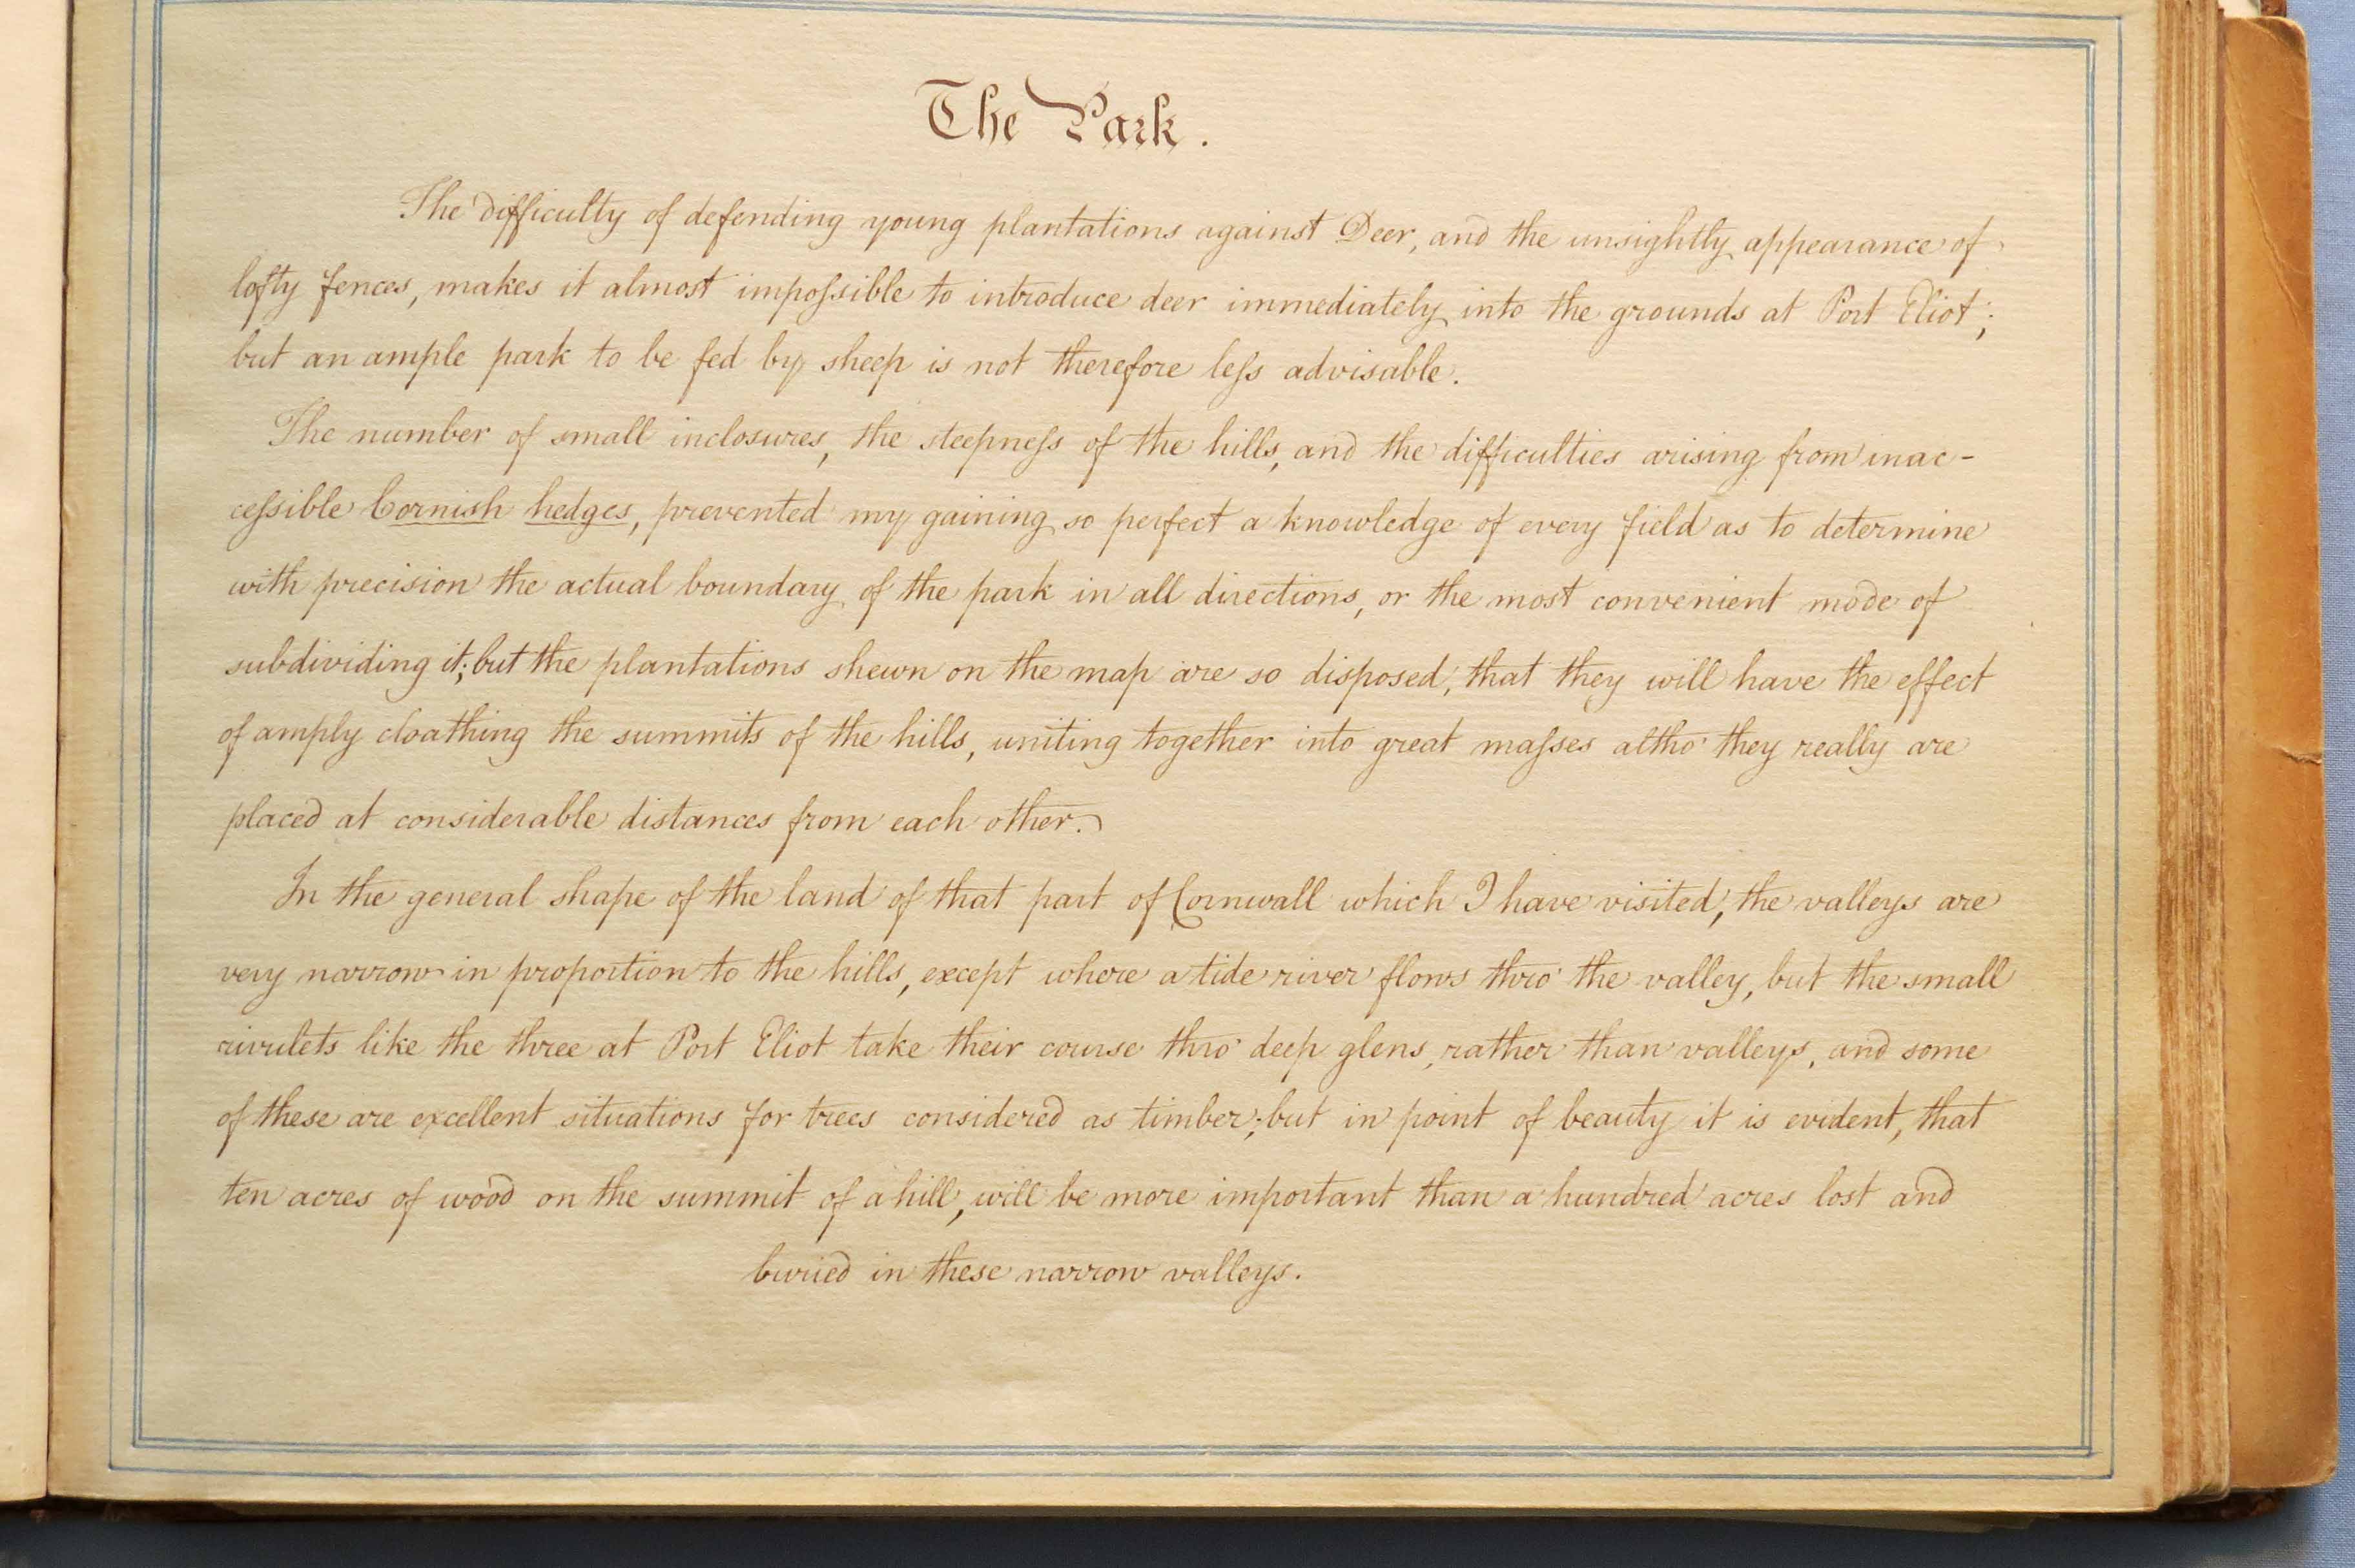 The Park.
The difficulty of defending young plantations against Deer, and the unsightly appearance of
lofty fences, makes it almost impoſsible to introduce deer immediately into the grounds at Port Eliot;
but an ample park to be fed by sheep is not therefore leſs advisable.
The number of small inclosures, the steepneſs of the hills, and the difficulties arising from inac-
ceſsible Cornish hedges, prevented my gaining so perfect a knowledge of every field as to determine
with precision the actual boundary of the park in all directions, or the most convenient mode of
subdividing it; but the plantations shewn on the map are so disposed, that they will have the effect
of amply cloathing the summits of the hills, uniting together into great maſses altho' they really are
placed at considerable distances from each other.
In the general shape of the land of that part of Cornwall which I have visited, the valleys are
very narrow in proportion to the hills, except where a tide river flows thro' the valley, but the small
rivulets like the three at Port Eliot take their course thro' deep glens, rather than valleys, and some
of these are excellent situations for trees considered as timber; but in point of beauty it is evident, that
ten acres of wood on the summit of a hill, will be more important than a hundred acres lost and
buried in these narrow valleys.